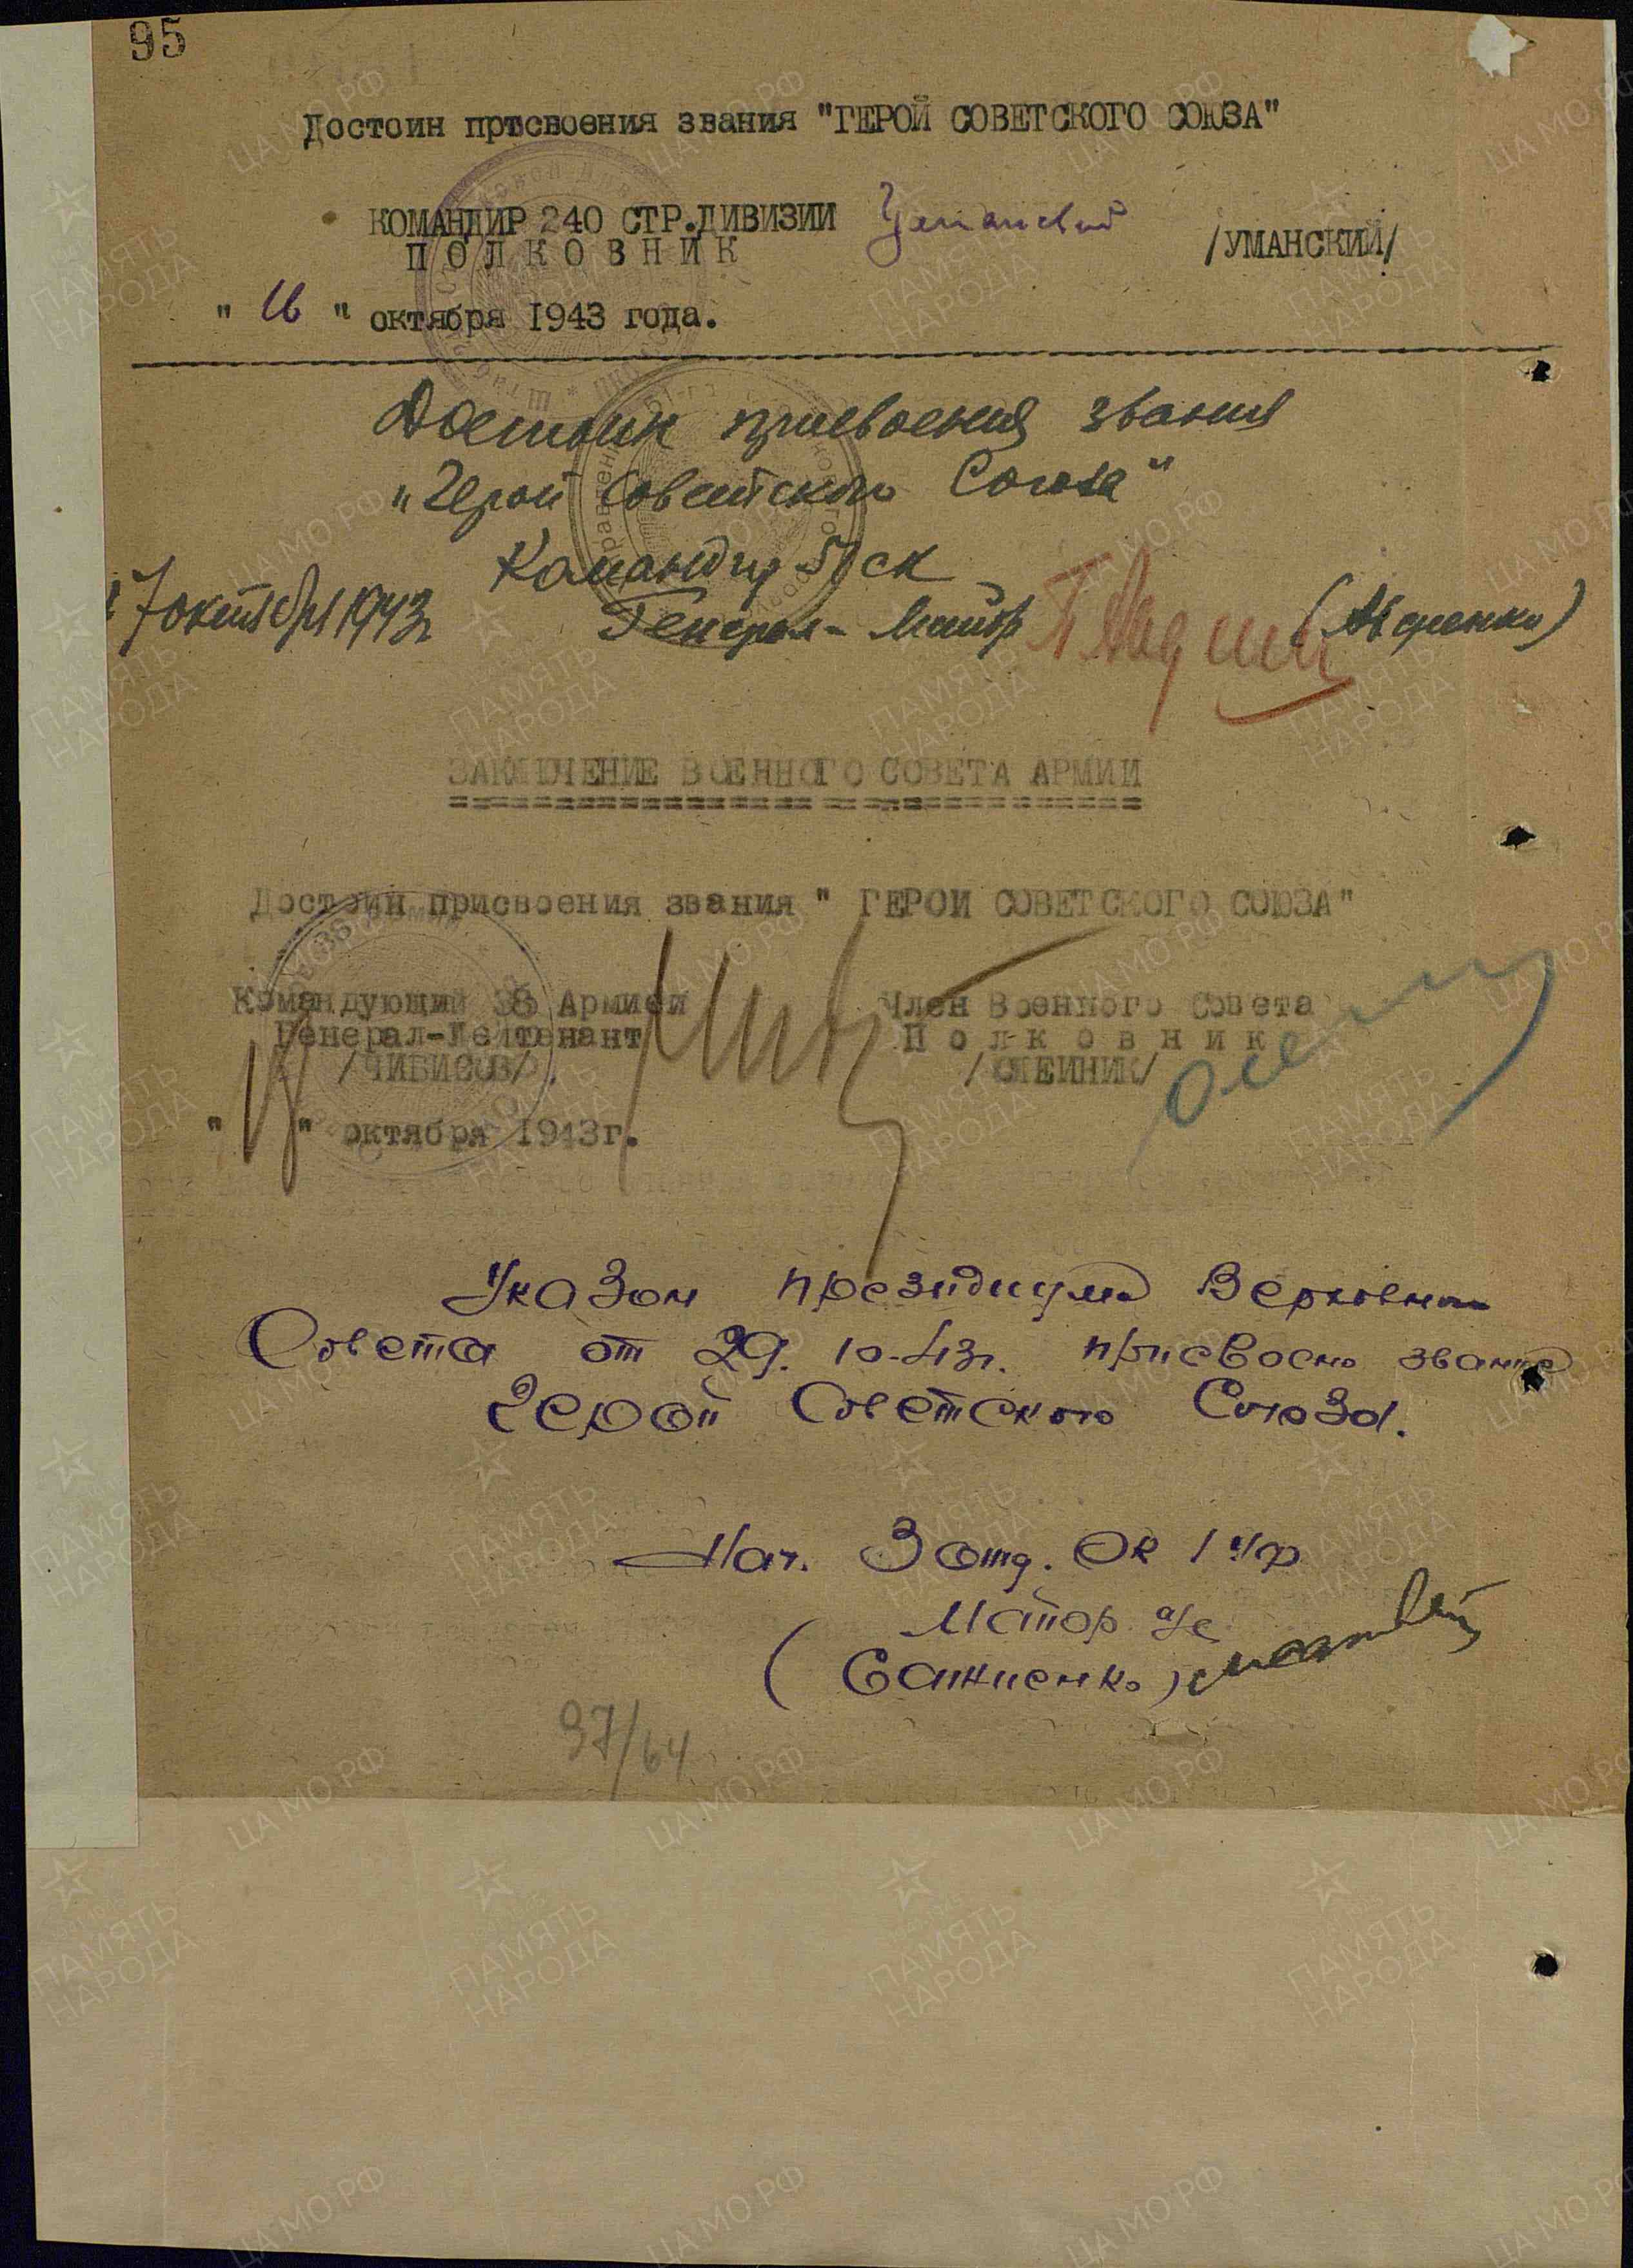 95
Достоин пртсвоения звания "ГЕРОЙ СОВЕТСКОГО СОЮЗА"
КОМАНДИР 240 СТР.ДИВИЗИИ Уманский /УМАНСКИЙ/
ПОЛКОВНИК
" 16 " октября 1943 года.
Достоин присвоения звания
"Герой Советского Союза"
Командир 51 ск
17 октября 1943г Генерал-Майор (Авдеенко)
ЗАКЛЮЧЕНИЕ ВОЕННОГО СОВЕТА АРМИИ
Достоин присвоения звания " ГЕРОЙ СОВЕТСКОГО СОЮЗА"
Командующий 38 Армией Член Военного Совета
Генерал-Лейтенант Полковник
/ЧИБИСОВ/ /ОЛЕЙНИК/
" " октября 1943г.
Указом президиума Верховного
Совета от 29.10.43г. присвоено звание
Герой Советского Союза.
Нач. 3 отд. ОК 1 Уф
Майор а/с
(Саниенко)
97/64
ЦА МО РФ
ПАМЯТЬ НАРОДА